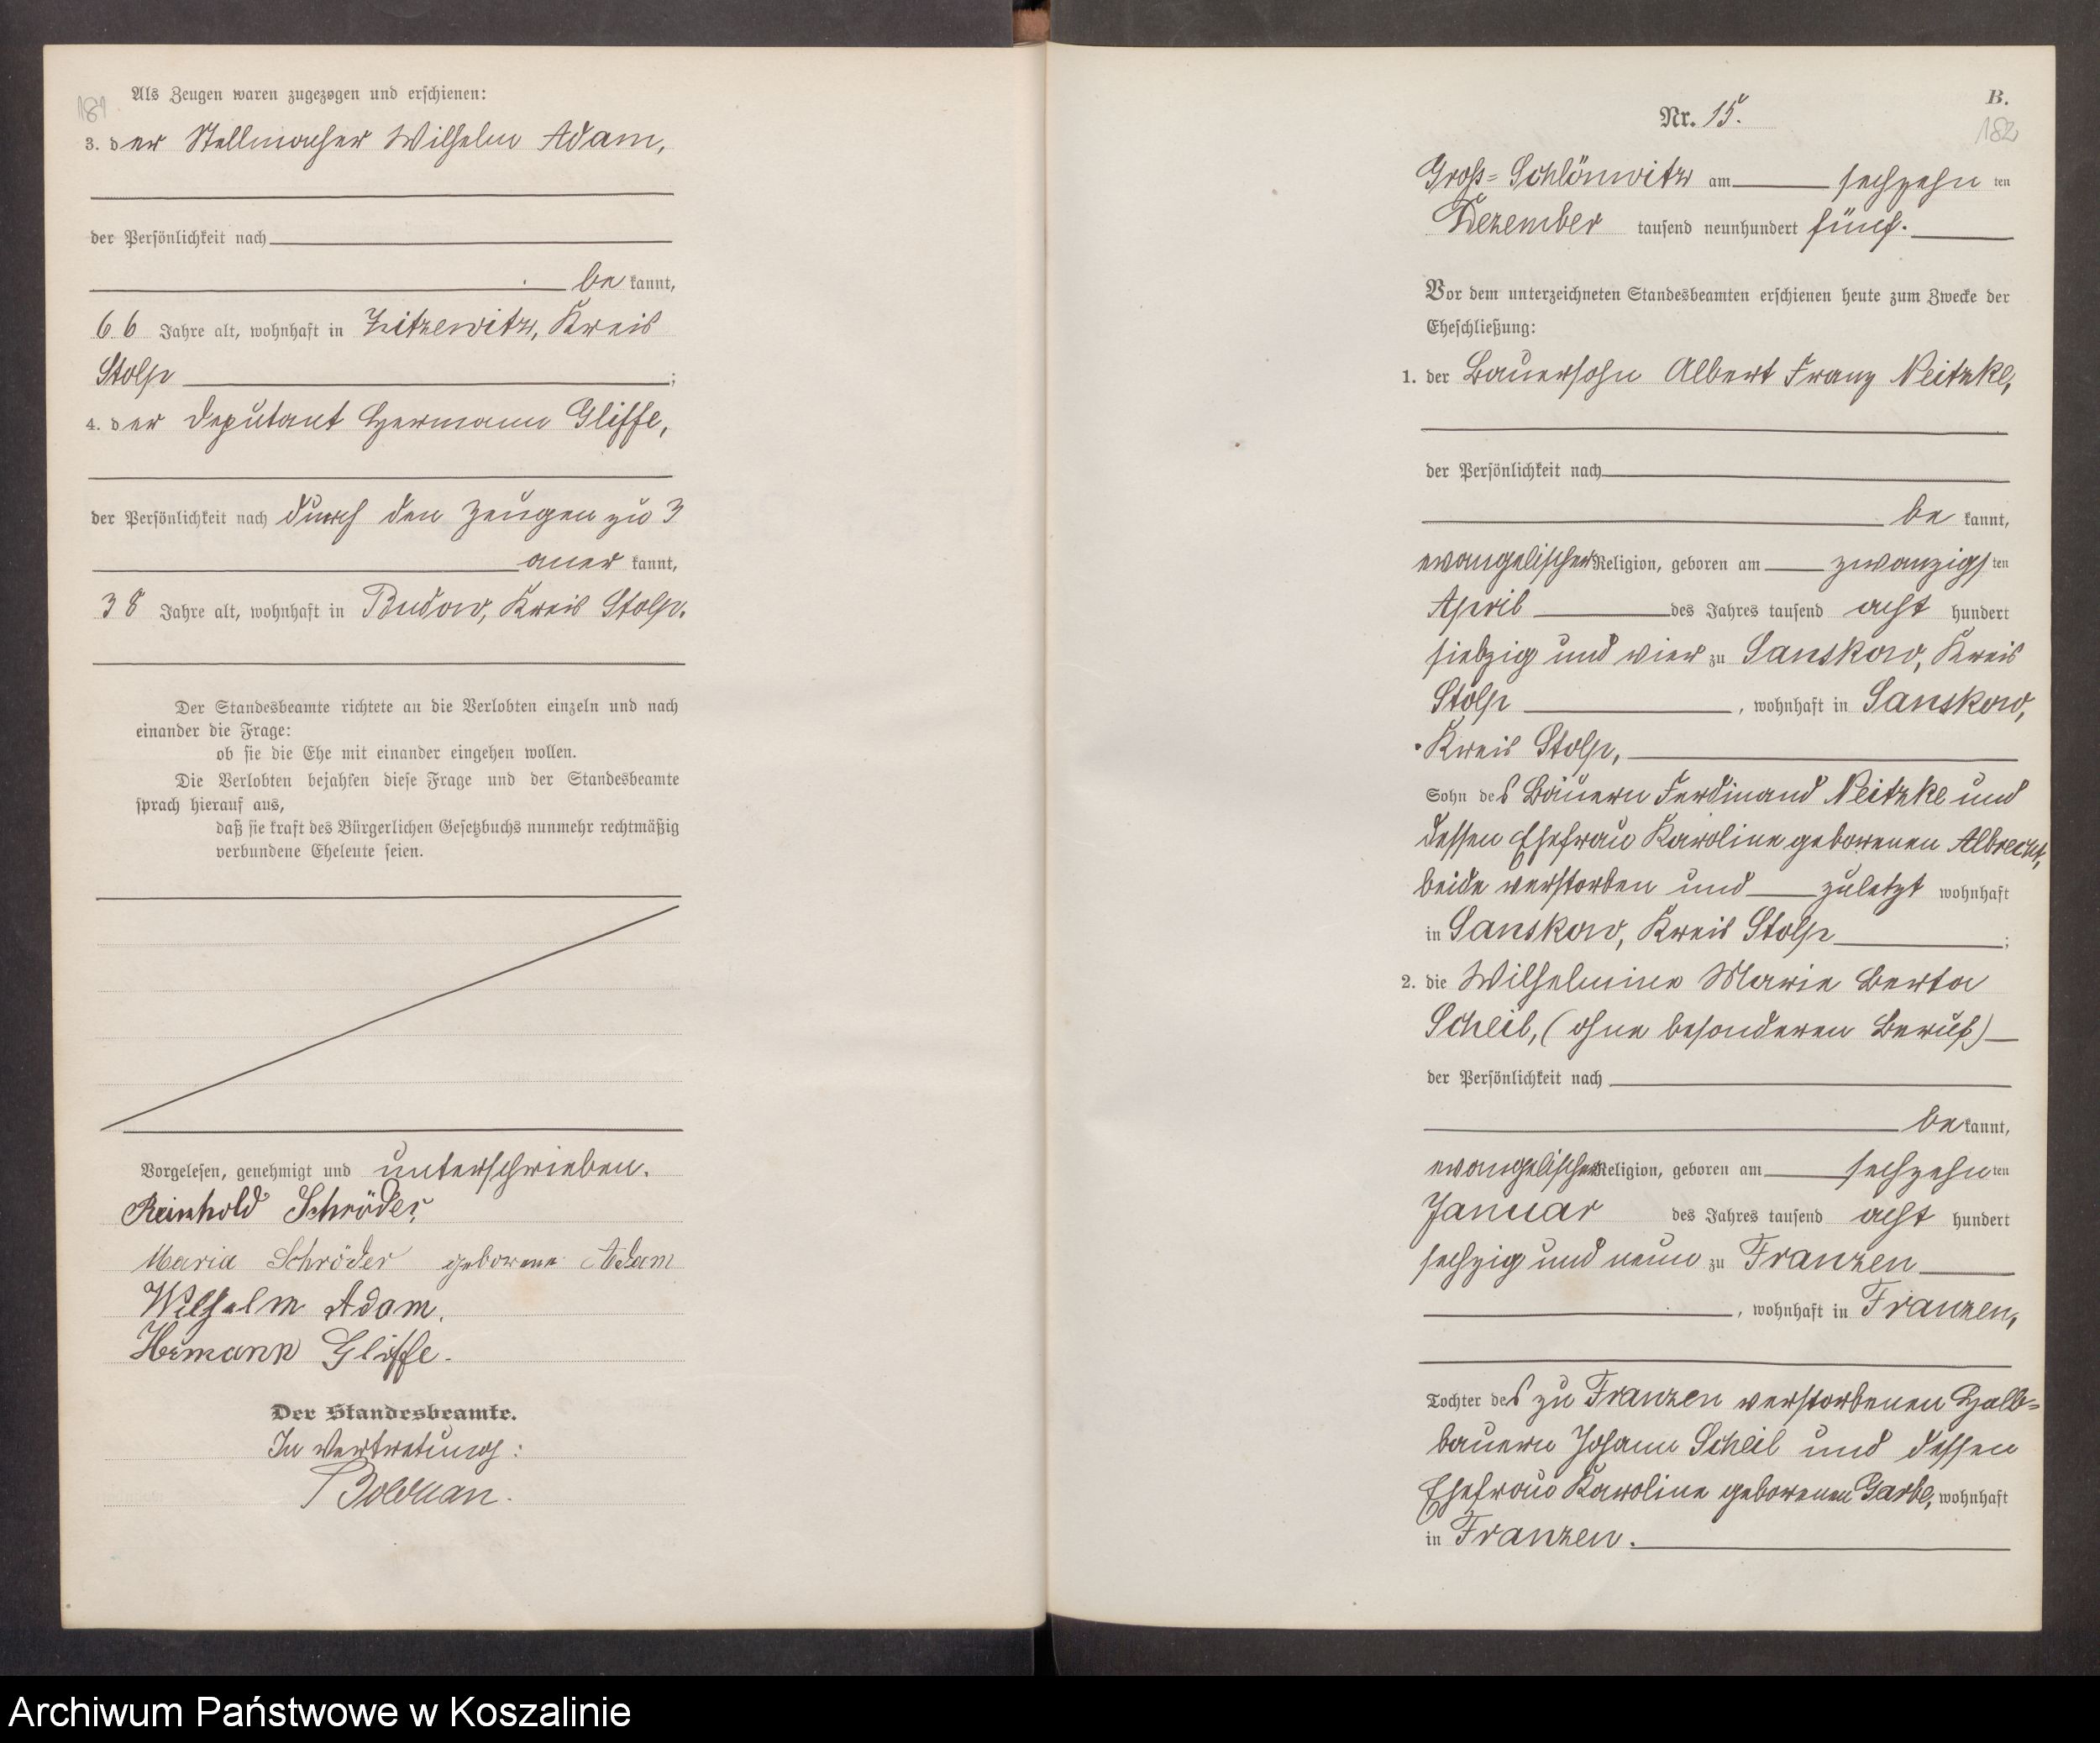 181
Als Zeugen waren zugezogen und erschienen:
3. der Stellmacher Wilhelm Adam,
der Persönlichkeit nach
be kannt,
66 Jahre alt, wohnhaft in Zitzewitz, Kreis
Stolp ;
4. der Deputant Hermann Gliffe,
der Persönlichkeit nach durch den Zeugen zu 3
aner kannt,
38 Jahre alt, wohnhaft in Budow, Kreis Stolp.
Der Standesbeamte richtete an die Verlobten einzeln und nach
einander die Frage:
ob sie die Ehe mit einander eingehen wollen.
Die Verlobten bejahten diese Frage und der Standesbeamte
sprach hierauf aus,
daß sie kraft des Bürgerlichen Gesetzbuchs nunmehr rechtmäßig
verbundene Eheleute seien.
Vorgelesen, genehmigt und unterschrieben.
Reinhold Schröder
Maria Schröder geborene Adam
Wilhelm Adam.
Hermann Gliffe.
Der Standesbeamte.
In Vertretung:
B.
Nr. 15.
182
Groß-Schlönwitz am sechzehn ten
Dezember tausend neunhundert fünf.
Vor dem unterzeichneten Standesbeamten erschienen heute zum Zwecke der
Eheschließung:
1. der Bauersohn Albert Franz Neitzke,
der Persönlichkeit nach
be kannt,
evangelischer Religion, geboren am zwanzigsten
April des Jahres tausend acht hundert
siebzig und vier zu Sanskow, Kreis
Stolp , wohnhaft in Sanskow,
Kreis Stolp,
Sohn des Bauern Ferdinand Neitzke und
dessen Ehefrau Karoline geborenen Albrecht,
beide verstorben und zuletzt wohnhaft
in Sanskow, Kreis Stolp ;
2. die Wilhelmine Marie Berta
Scheil, (ohne besonderen Beruf)
der Persönlichkeit nach
be kannt,
evangelischer Religion, geboren am sechzehn ten
Januar des Jahres tausend acht hundert
sechzig und neun zu Franzen
, wohnhaft in Franzen,
Tochter des zu Franzen verstorbenen Halb-
bauern Johann Scheil und dessen
Ehefrau Karoline geborenen Garbe, wohnhaft
in Franzen.
Archiwum Państwowe w Koszalinie